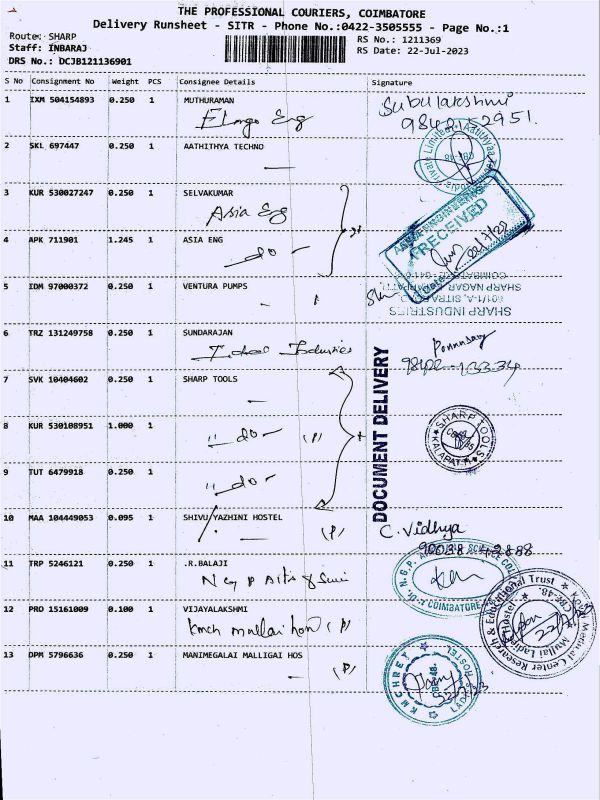 THE PROFESSIONAL COURIERS, COIMBATORE
Delivery Runsheet - SITR - Phone No.:0422-3505555 - Page No.:1
Route: SHARP
RS No.: 1211369
Staff: INBARAJ
RS Date: 22-Jul-2023
DRS No.: DCJB121136901
S No Consignment No Weight PCS Consignee Details Signature
1 IXM 504154893 0.250 1 MUTHURAMAN
Elango Eng
Subulakshmi
2 SKL 697447 0.250 1 AATHITHYA TECHNO
3 KUR 530027247 0.250 1 SELVAKUMAR
Asia Eng
RECEIVED
4 APK 711901 1.245 1 ASIA ENG
- do -
5 IDM 97000372 0.250 1 VENTURA PUMPS
SHARP INDUSTRIES
6 TRZ 131249758 0.250 1 SUNDARAJAN
Industries
7 SVK 10404602 0.250 1 SHARP TOOLS
DOCUMENT DELIVERY
8 KUR 530108951 1.000 1
" do - (P)
SHARP TOOLS
KALAPATTI
9 TUT 6479918 0.250 1
" do -
10 MAA 104449053 0.095 1 SHIVU/YAZHINI HOSTEL
(P)
C. Vidhya
90038 42888
11 TRP 5246121 0.250 1 .R.BALAJI
COIMBATORE
12 PRO 15161009 0.100 1 VIJAYALAKSHMI
kmch mullai hos (P)
Kovai Medical Center Research & Educational Trust
Mullai Ladies Hostel
CBE-48.
13 DPM 5796636 0.250 1 MANIMEGALAI MALLIGAI HOS
(P)
KMCHRET
LADIES HOSTEL
CBE-48-